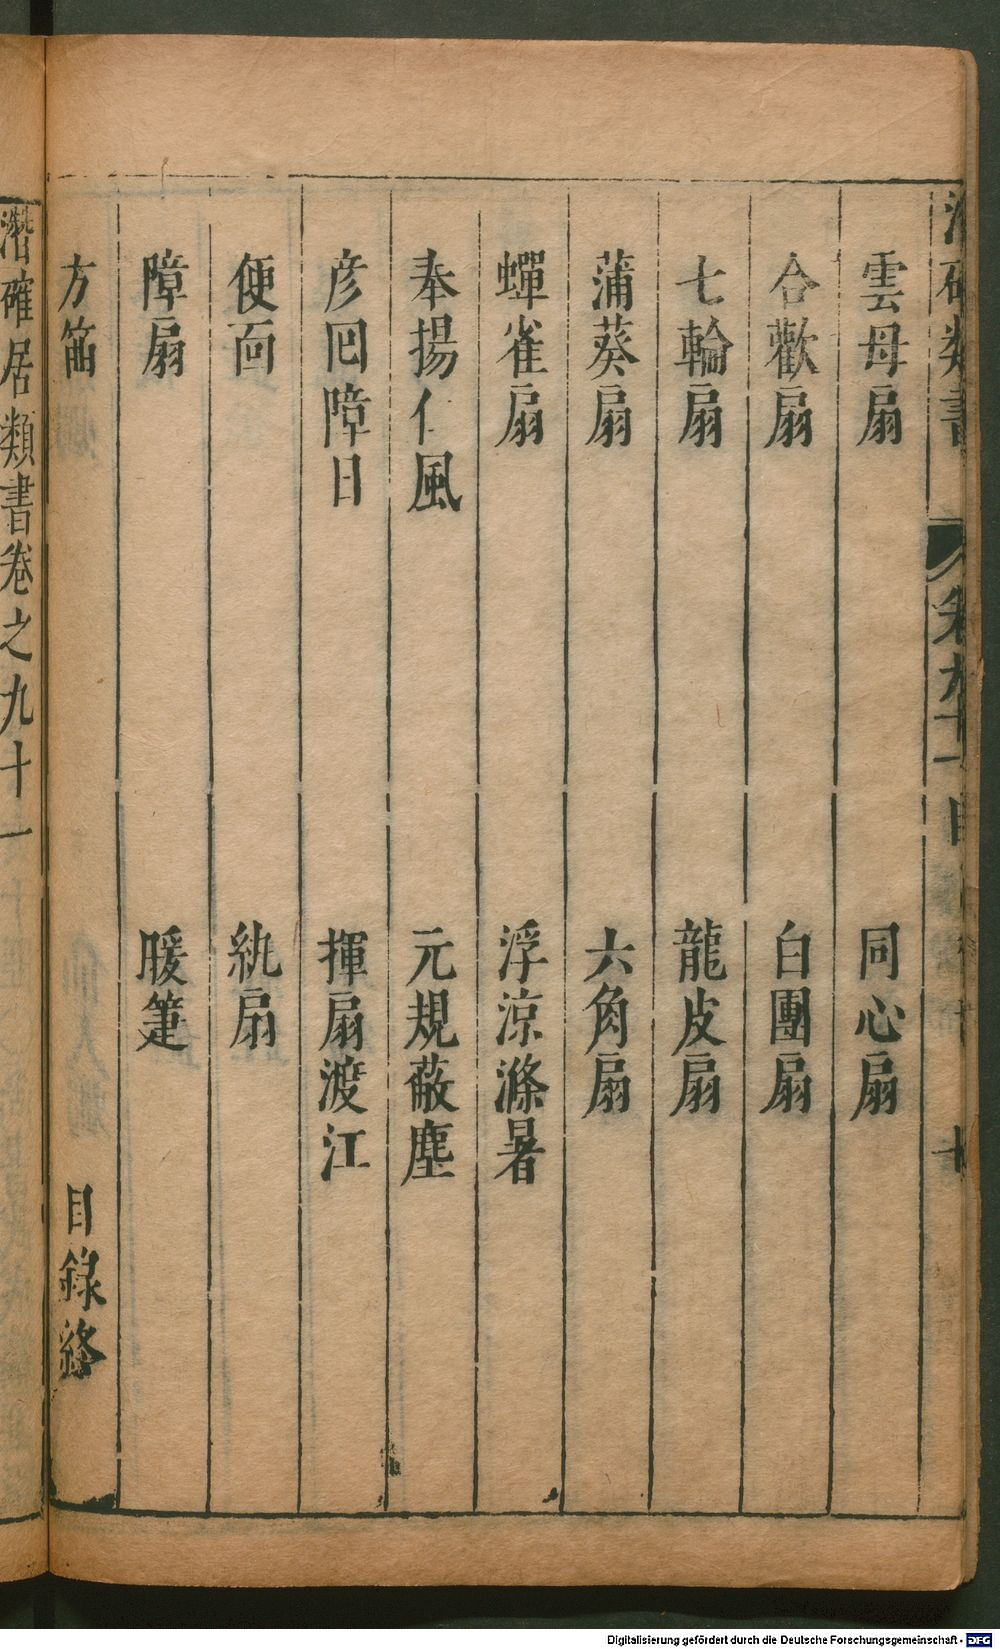 雲母扇　同心扇
合歡扇　白團扇
七輪扇　龍皮扇
蒲葵扇　六角扇
蟬雀扇　浮涼滌暑
奉揚仁風　元規蔽塵
彦回障日　揮扇渡江
便面　紈扇
障扇　暖箑
方箑　目錄終
潛確居類書卷之九十一
Digitalisierung gefördert durch die Deutsche Forschungsgemeinschaft - DFG